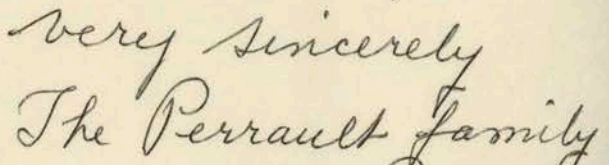 very sincerely
The Perrault family